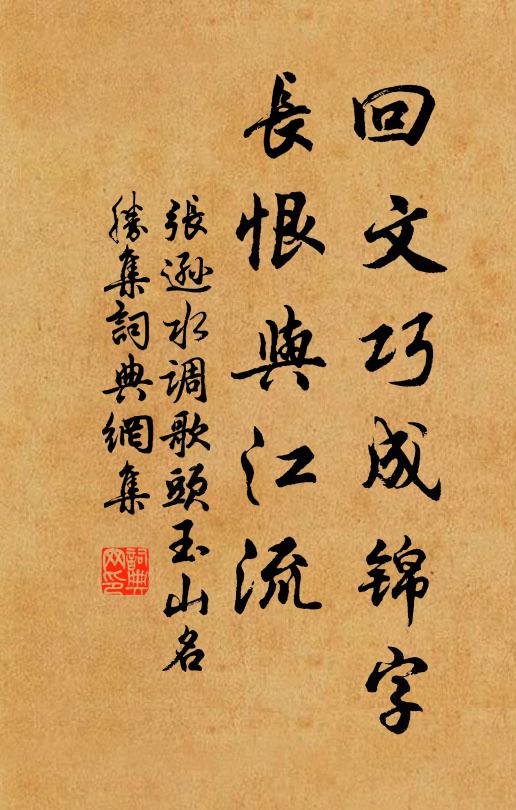 回文巧成锦字
長恨與江流
張遜水调歌頭玉山名
勝集詞典網集
詞典
网印